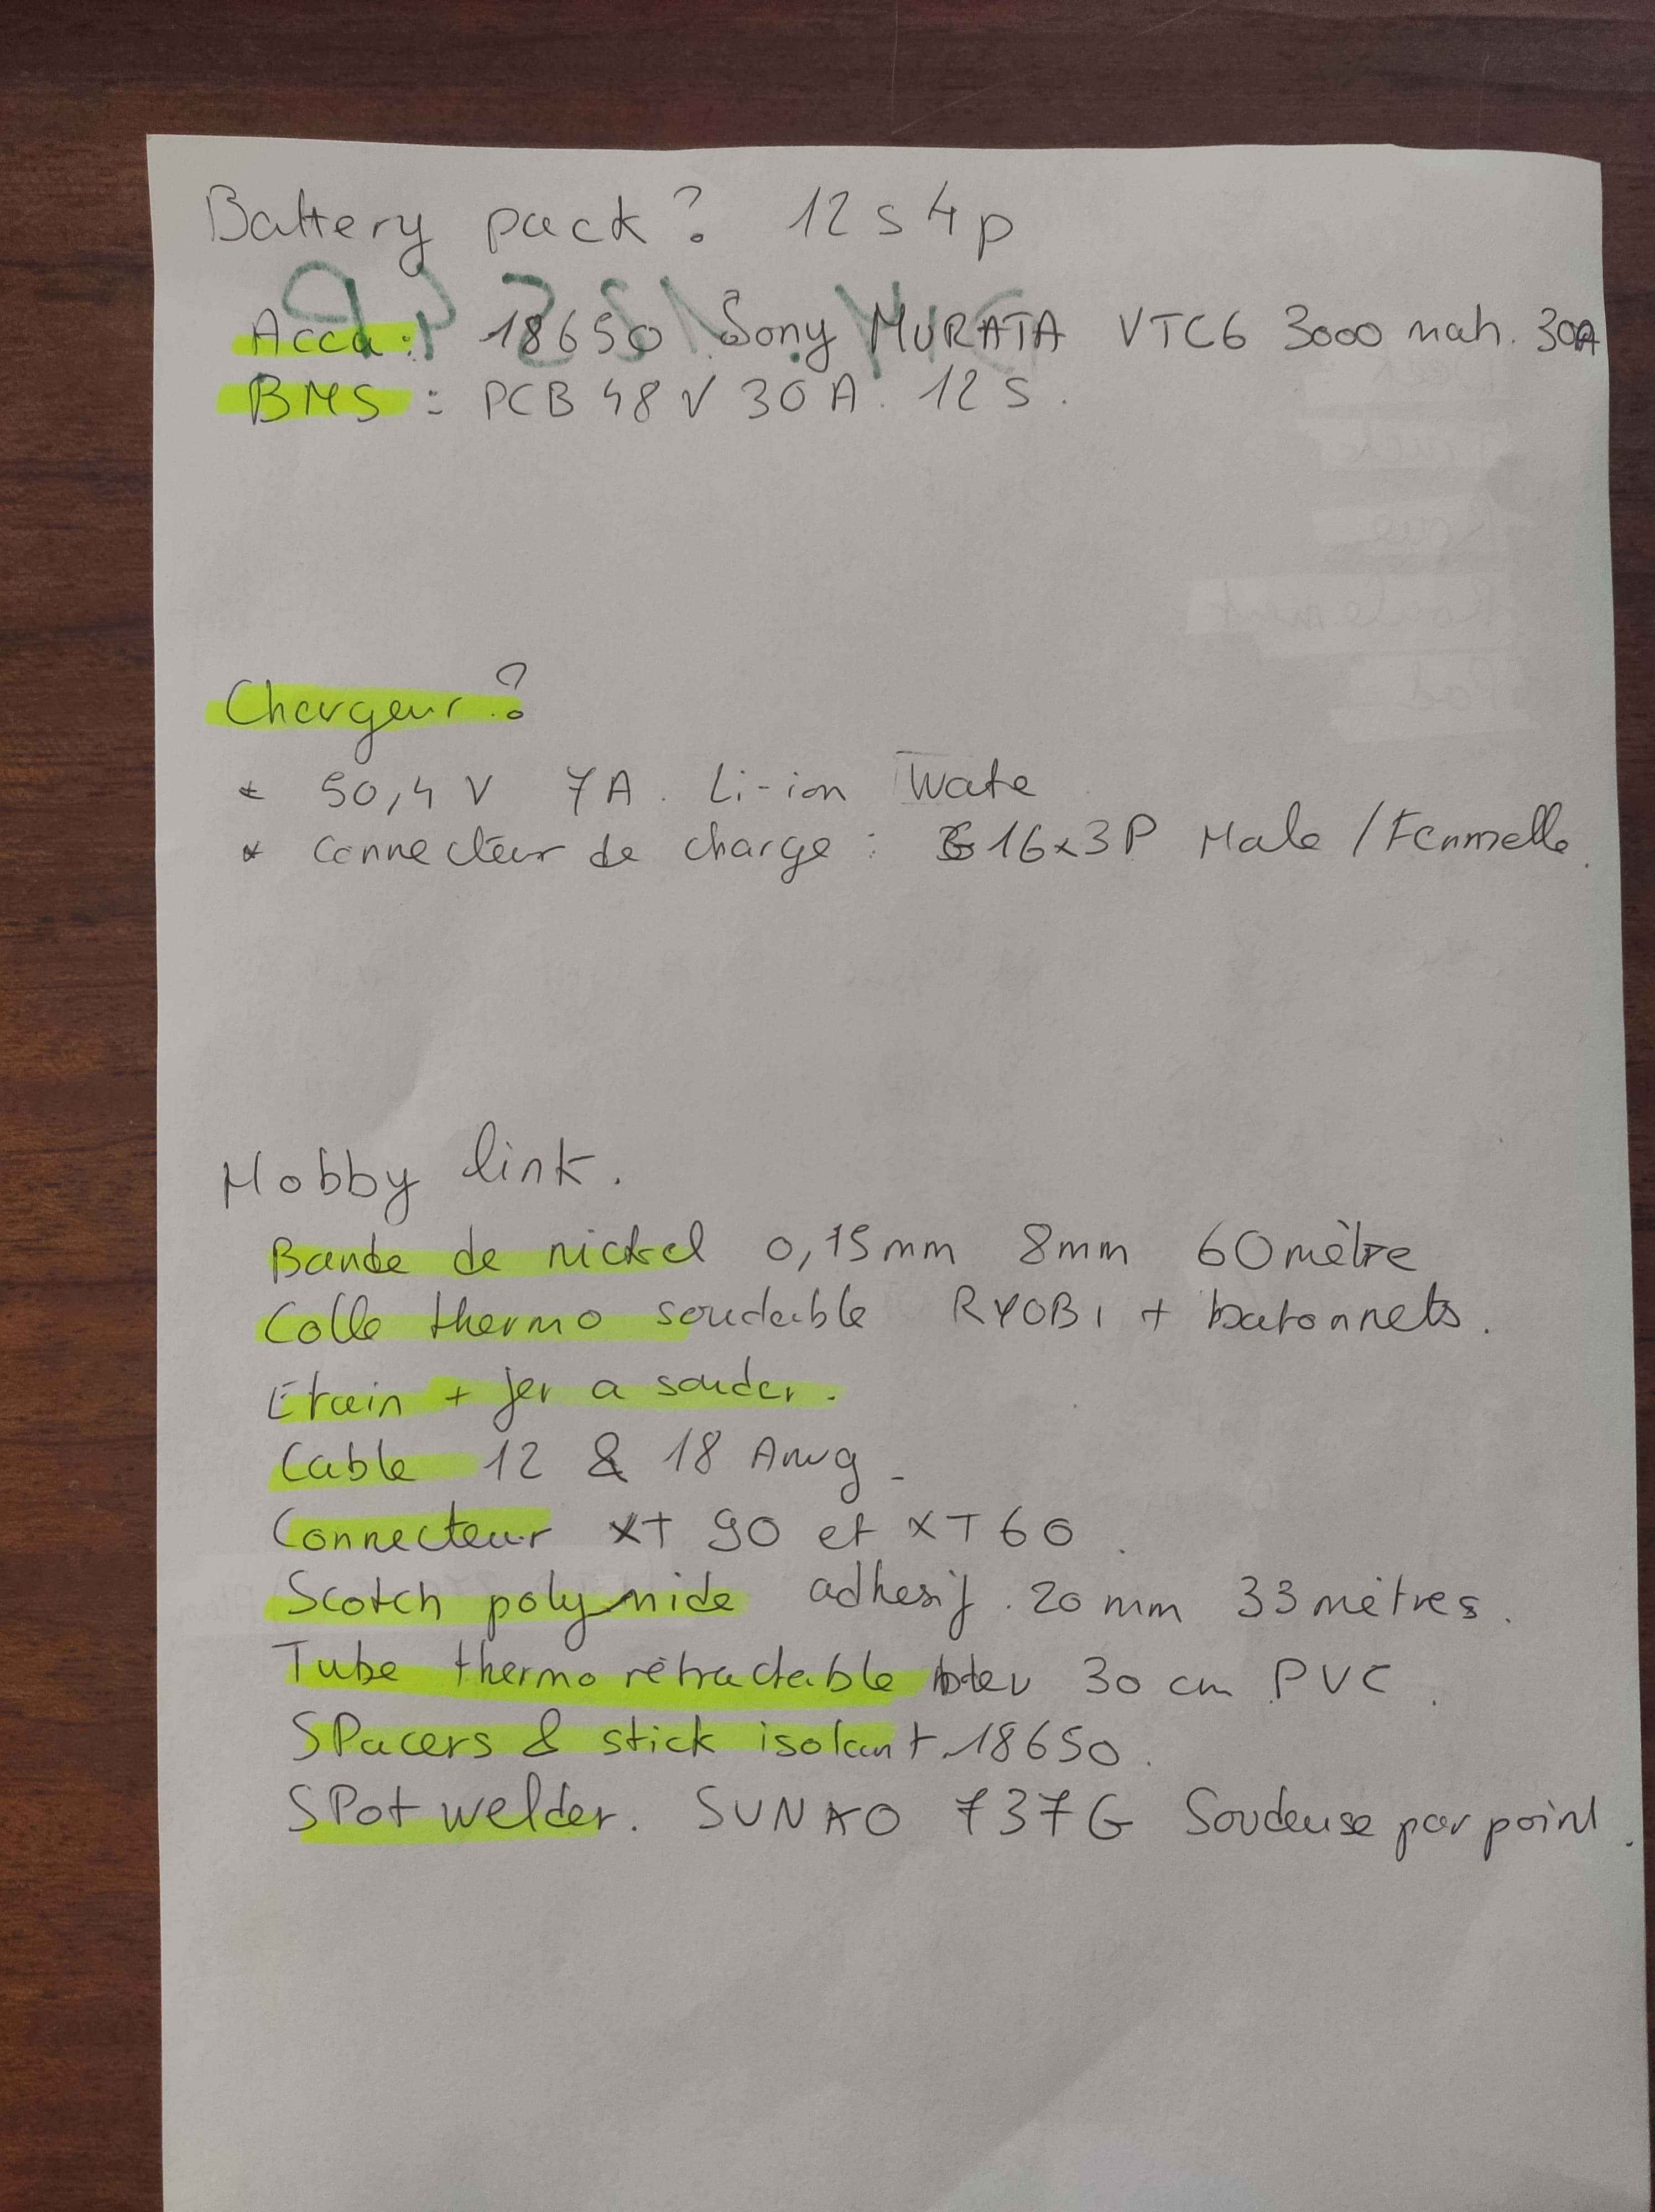 Battery pack? 12s4p
Accu: 18650 Sony MURATA VTC6 3000 mah. 30A
BMS: PCB 48V 30A. 12S.
Chargeur?
* 50,4V 7A. Li-ion Wate
* connecteur de charge: G16x3P Male / Femmelle.
Hobby link.
Bande de nickel 0,15mm 8mm 60mètre
Colle thermo soudable RYOBI + batonnets.
Etain + fer a souder.
Cable 12 & 18 Awg -
Connecteur XT 90 et XT60.
Scotch polymide adhesif. 20mm 33 mètres.
Tube thermo rétractable 30 cm PVC.
SPacers & stick isolant 18650.
SPot welder. SUNKO 737G Soudeuse par point.